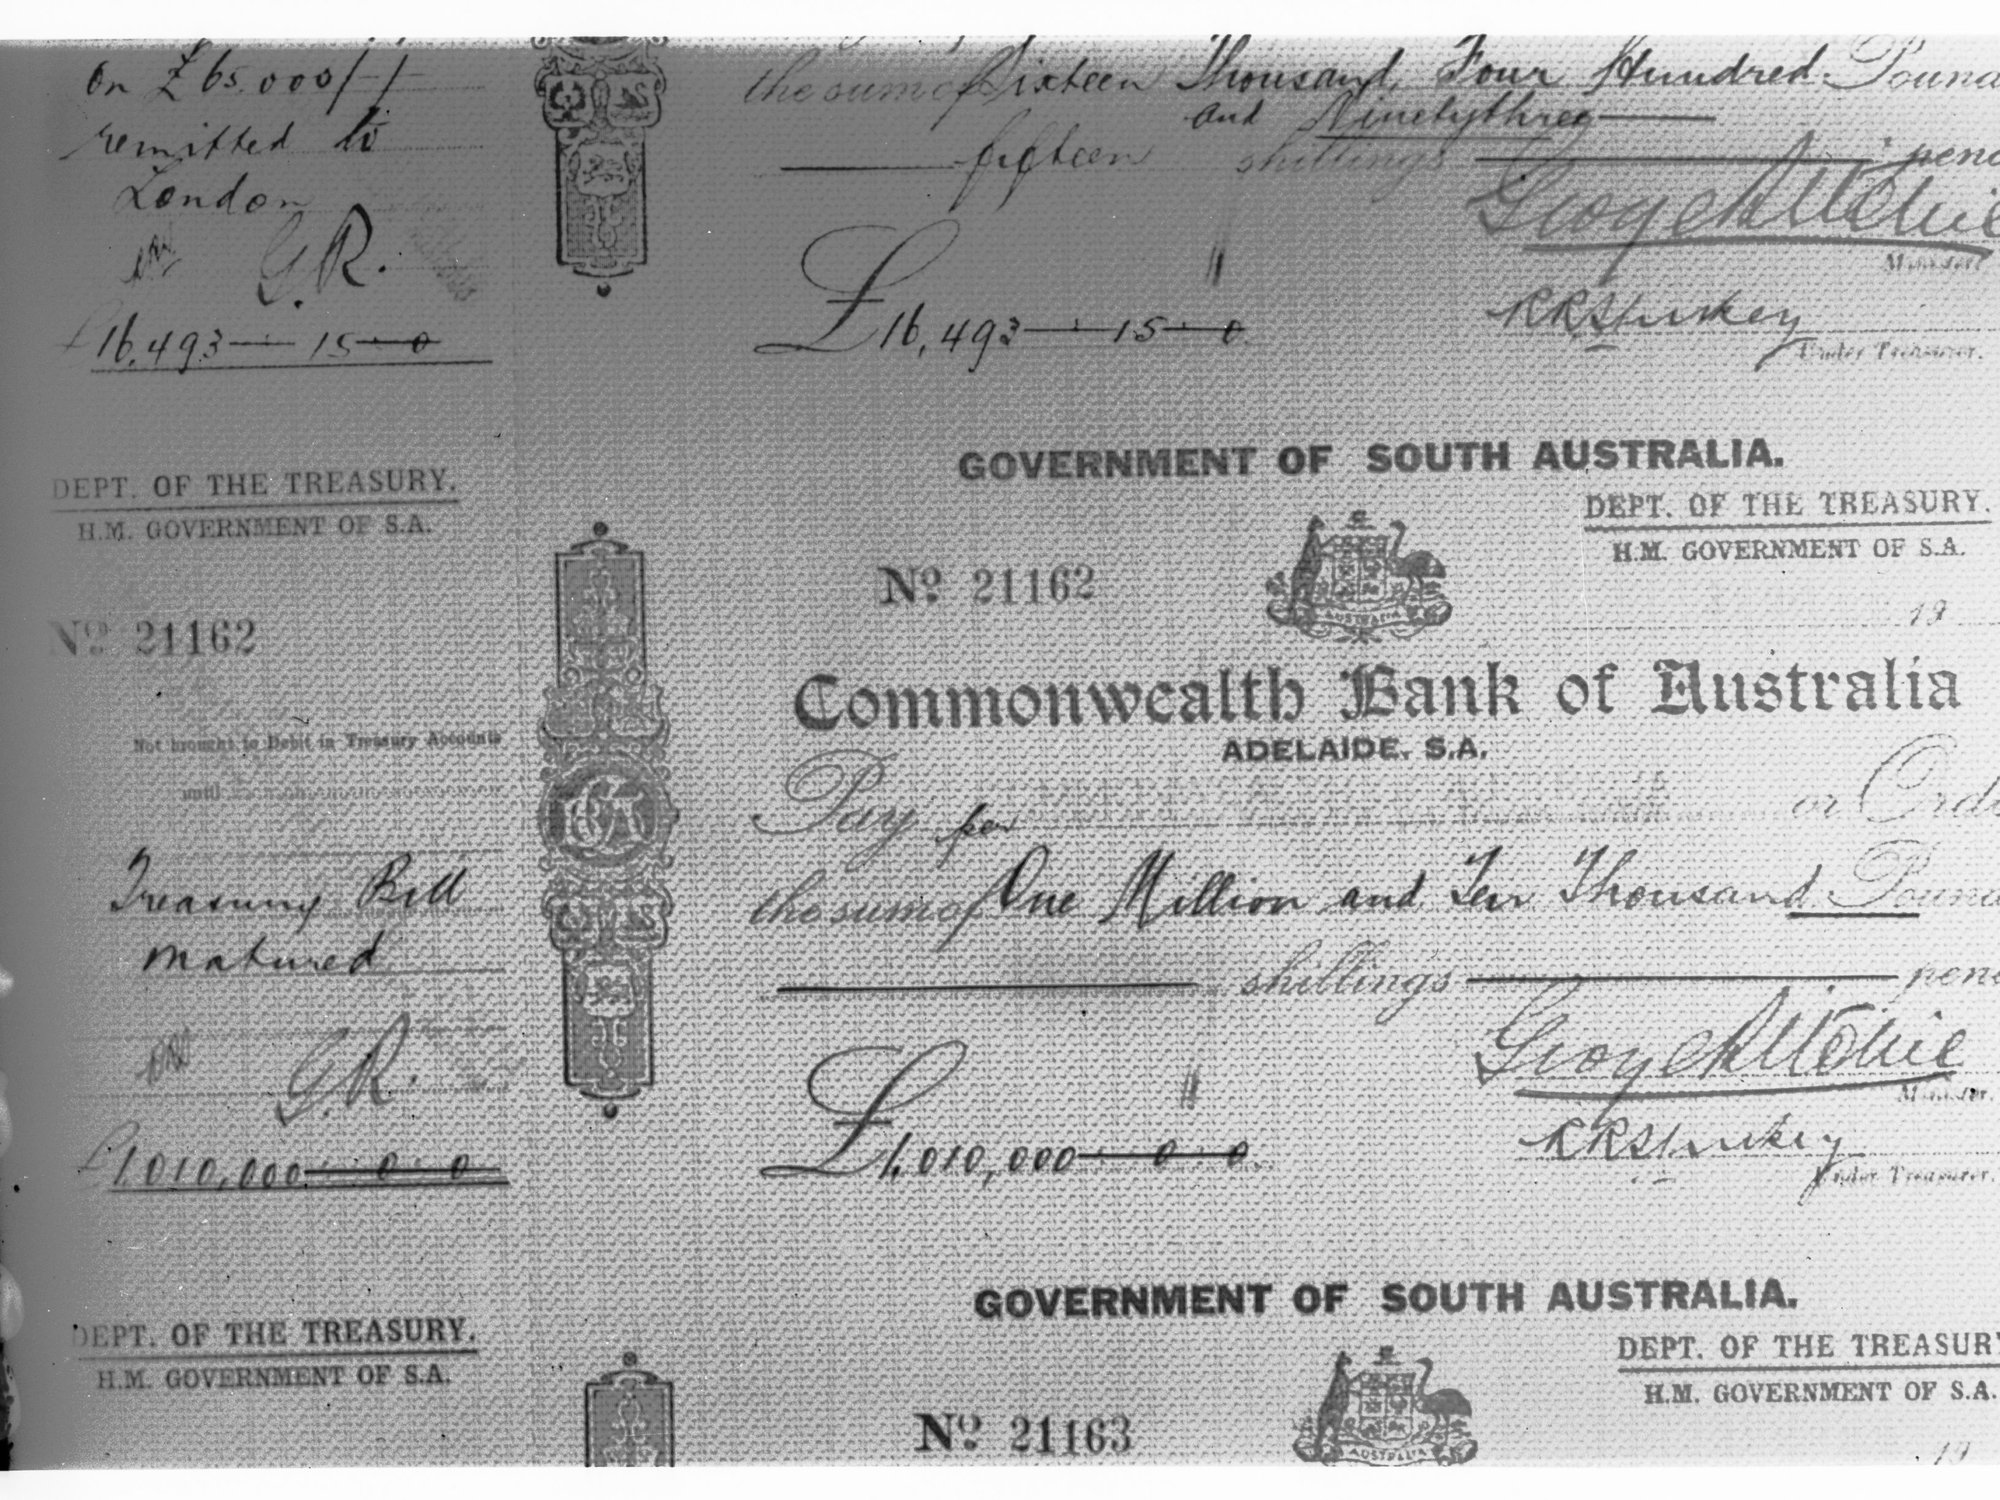 on £65.000/-/-
remitted to
London
G.R.
16,493 — 15 — 0
the sum of Sixteen Thousand, Four Hundred Pound
and Ninetythree
fifteen shillings penc
George Ritchie
Minister.
RRStuckey
Under Treasurer.
£16,493 — 15 — 0
DEPT. OF THE TREASURY.
H.M. GOVERNMENT OF S.A.
No 21162
Not brought to Debit in Treasury Accounts
until
Treasury Bill
matured
G.R.
£1,010,000 — 0 — 0
GOVERNMENT OF SOUTH AUSTRALIA.
DEPT. OF THE TREASURY.
H.M. GOVERNMENT OF S.A.
No 21162
AUSTRALIA
19
Commonwealth Bank of Australia
ADELAIDE, S.A.
Pay per or Orde
the sum of One Million and Ten Thousand Pound
shillings penc
George Ritchie
Minister.
RRStuckey
Under Treasurer.
£1,010,000 — 0 — 0
DEPT. OF THE TREASURY.
H.M. GOVERNMENT OF S.A.
GOVERNMENT OF SOUTH AUSTRALIA.
DEPT. OF THE TREASURY
H.M. GOVERNMENT OF S.A.
No 21163
AUSTRALIA
19